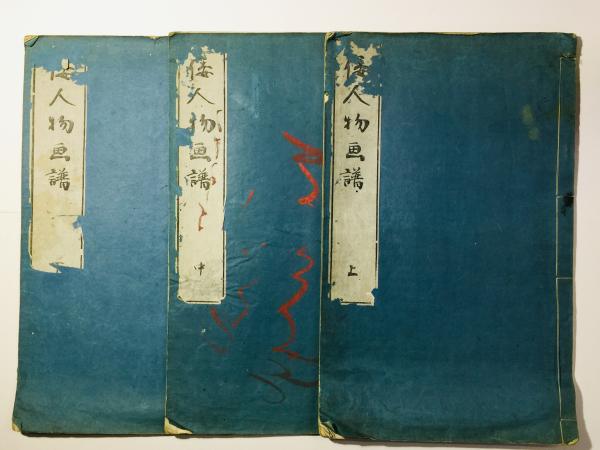 倭人物画譜
上
倭人物画譜
中
倭人物画譜